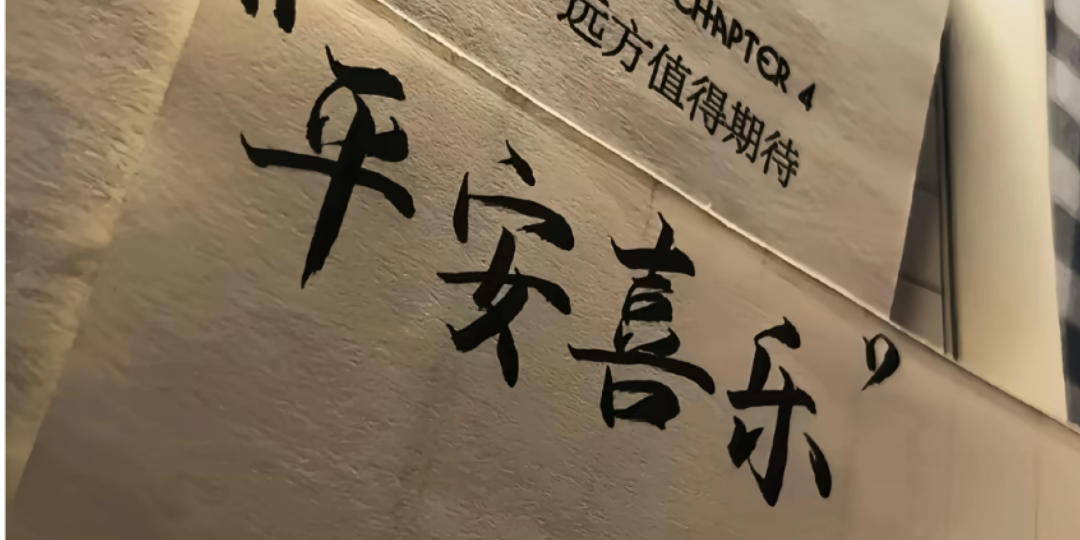 CHAPTER 4
远方值得期待
平安喜乐”